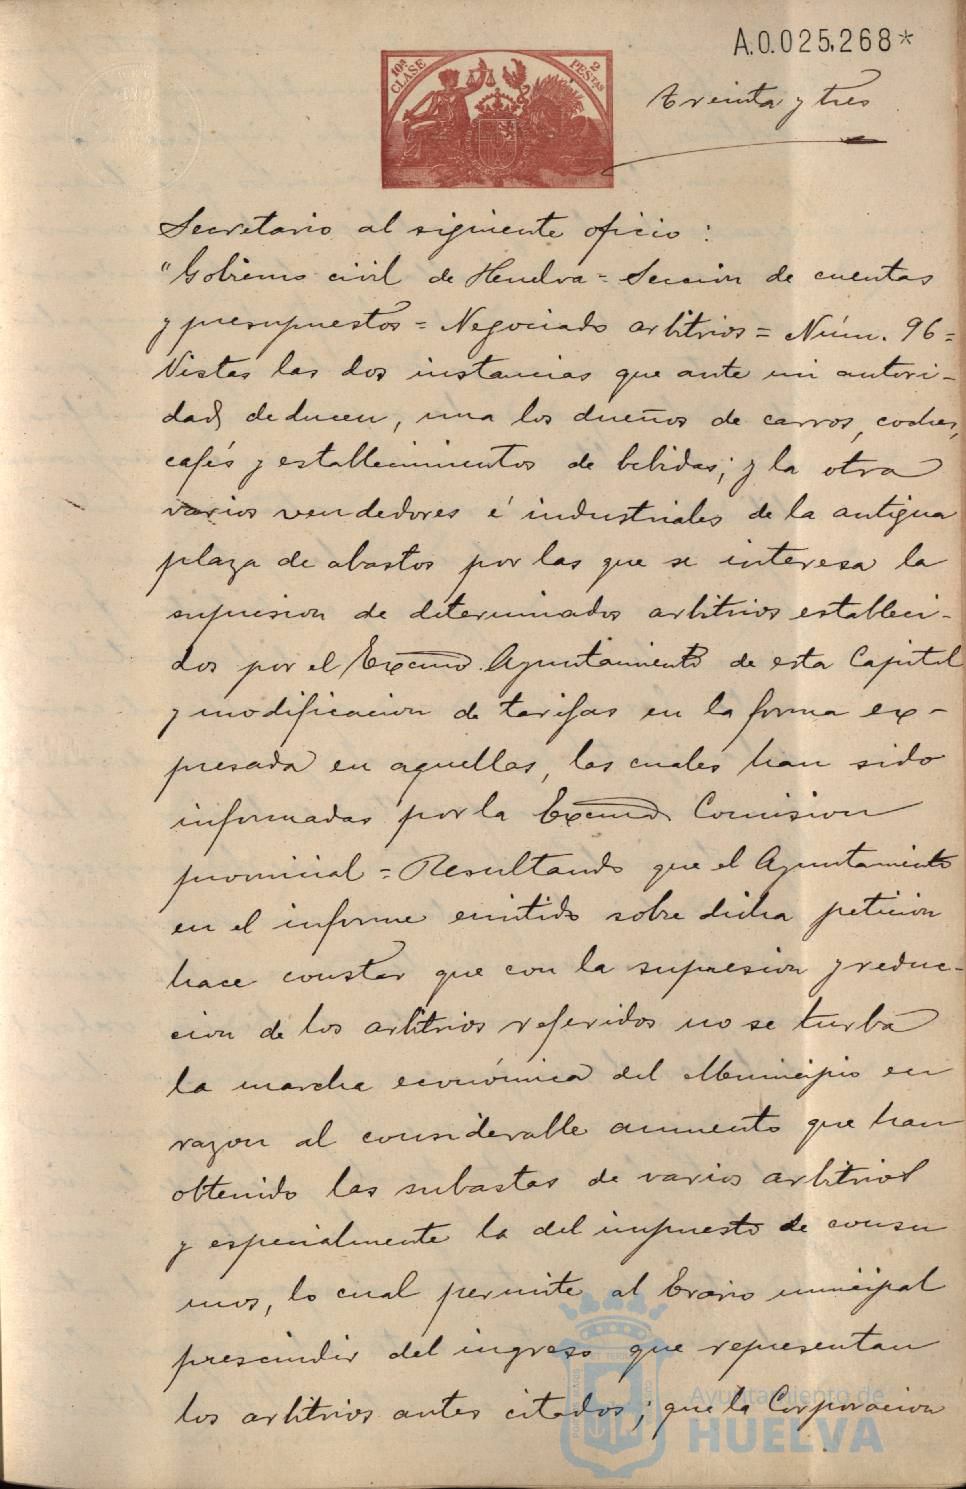 A.0.025.268*
10ª CLASE
2 PESETAS
Treinta y tres
Secretario al siguiente oficio:
"Gobierno civil de Huelva = Sección de cuentas
y presupuestos = Negociado arbitrios = Núm. 96 =
Vistas las dos instancias que ante mi autori-
dad deducen, una los dueños de carros, coches,
cafés y establecimientos de bebidas; y la otra
varios vendedores é industriales de la antigua
plaza de abastos por las que se interesa la
supresion de determinados arbitrios estableci-
dos por el Excmo. Ayuntamiento de esta Capital
y modificacion de tarifas en la forma ex-
presada en aquellas, las cuales han sido
informadas por la Excma. Comision
provincial = Resultando que el Ayuntamiento
en el informe emitido sobre dicha peticion
hace constar que con la supresion y reduc-
cion de los arbitrios referidos no se turba
la marcha económica del Municipio en
razon al considerable aumento que han
obtenido las subastas de varios arbitrios
y especialmente la del impuesto de consu
mos, lo cual permite al Erario municipal
prescindir del ingreso que representan
los arbitrios antes citados; que la Corporacion
Ayuntamiento de
HUELVA